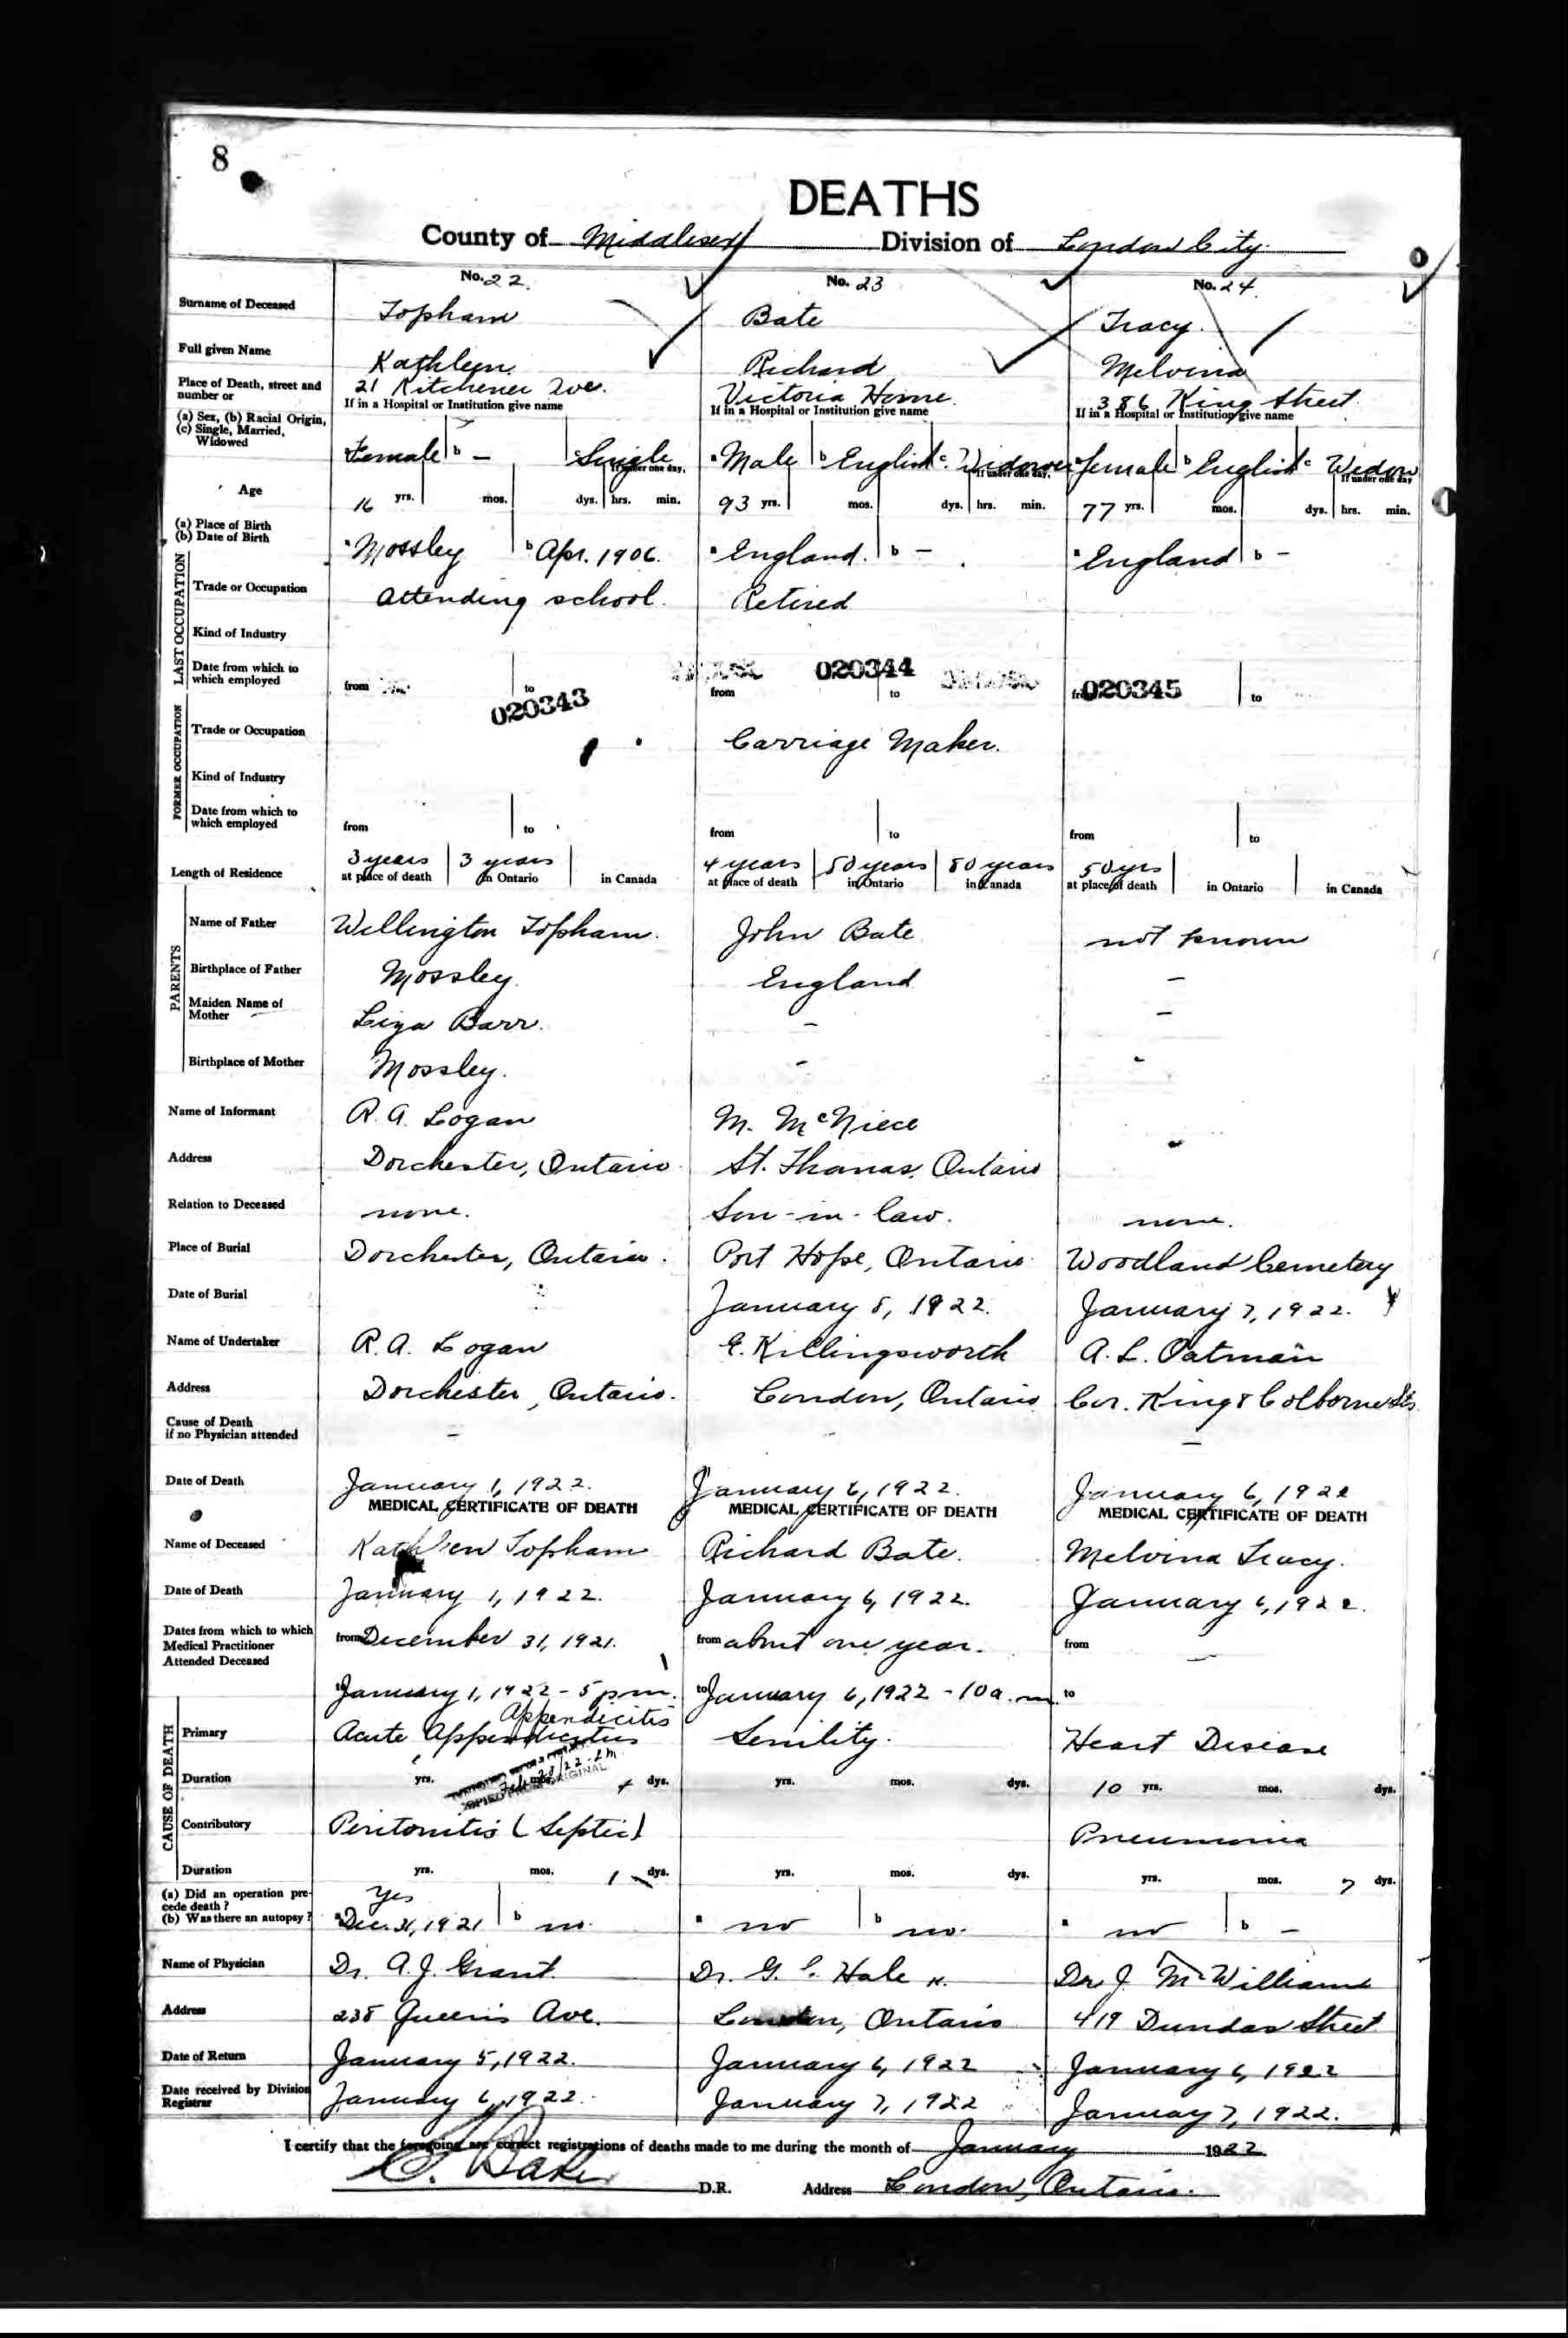 8
DEATHS
County of Middlesex Division of London City.
No. 22. No. 23 No. 24.
Surname of Deceased Topham Bate Tracy.
Full given Name Kathleen Richard Melvina
Place of Death, street and number or 21 Kitchener Ave. Victoria Home. 386 King Street
If in a Hospital or Institution give name If in a Hospital or Institution give name If in a Hospital or Institution give name
(a) Sex, (b) Racial Origin, (c) Single, Married, Widowed
a Female b - c Single a Male b English c Widower a Female b English c Widow
If under one day. If under one day. If under one day
Age 16 yrs. mos. dys. hrs. min. 93 yrs. mos. dys. hrs. min. 77 yrs. mos. dys. hrs. min.
(a) Place of Birth
(b) Date of Birth
a Mossley b Apr. 1906. a England. b - a England b -
LAST OCCUPATION
Trade or Occupation Attending school. Retired
Kind of Industry
Date from which to which employed from to from to from to
020343 020344 020345
FORMER OCCUPATION
Trade or Occupation Carriage Maker.
Kind of Industry
Date from which to which employed from to from to from to
Length of Residence 3 years 3 years 4 years 50 years 50 years 50 yrs
at place of death in Ontario in Canada at place of death in Ontario in Canada at place of death in Ontario in Canada
PARENTS
Name of Father Wellington Topham. John Bate not known
Birthplace of Father Mossley. England -
Maiden Name of Mother Liza Barr. - -
Birthplace of Mother Mossley. - -
Name of Informant R. A. Logan M. McNiece -
Address Dorchester, Ontario St. Thomas, Ontario
Relation to Deceased none. Son-in-law. none.
Place of Burial Dorchester, Ontario. Port Hope, Ontario Woodland Cemetery
Date of Burial January 8, 1922. January 7, 1922.
Name of Undertaker R. A. Logan E. Killingsworth A. L. Oatman
Address Dorchester, Ontario. London, Ontario Cor. King & Colborne Sts
Cause of Death if no Physician attended - - -
Date of Death January 1, 1922. January 6, 1922. January 6, 1922
MEDICAL CERTIFICATE OF DEATH MEDICAL CERTIFICATE OF DEATH MEDICAL CERTIFICATE OF DEATH
Name of Deceased Kathleen Topham Richard Bate. Melvina Tracy.
Date of Death January 1, 1922. January 6, 1922. January 6, 1922.
Dates from which to which Medical Practitioner Attended Deceased
from December 31, 1921. from about one year. from -
to January 1, 1922 - 5 p.m. to January 6, 1922 - 10 a.m. to
CAUSE OF DEATH
Appendicitis
Primary Acute Appendicitis Senility. Heart Disease
Duration yrs. 4 dys. yrs. mos. dys. 10 yrs. mos. dys.
ORIGINAL
Contributory Peritonitis (Septic) Pneumonia
Duration yrs. mos. 1 dys. yrs. mos. dys. yrs. mos. 7 dys.
(a) Did an operation precede death?
(b) Was there an autopsy?
Yes
a Dec. 31, 1921 b no. a no b no. a no b -
Name of Physician Dr. A. J. Grant. Dr. G. C. Hale Dr J. McWilliams
Address 238 Queen's Ave. London, Ontario 419 Dundas Street
Date of Return January 5, 1922. January 6, 1922 January 6, 1922
Date received by Division Registrar January 6, 1922. January 7, 1922 January 7, 1922.
I certify that the foregoing are correct registrations of deaths made to me during the month of January 1922
Baker D.R. Address London, Ontario.